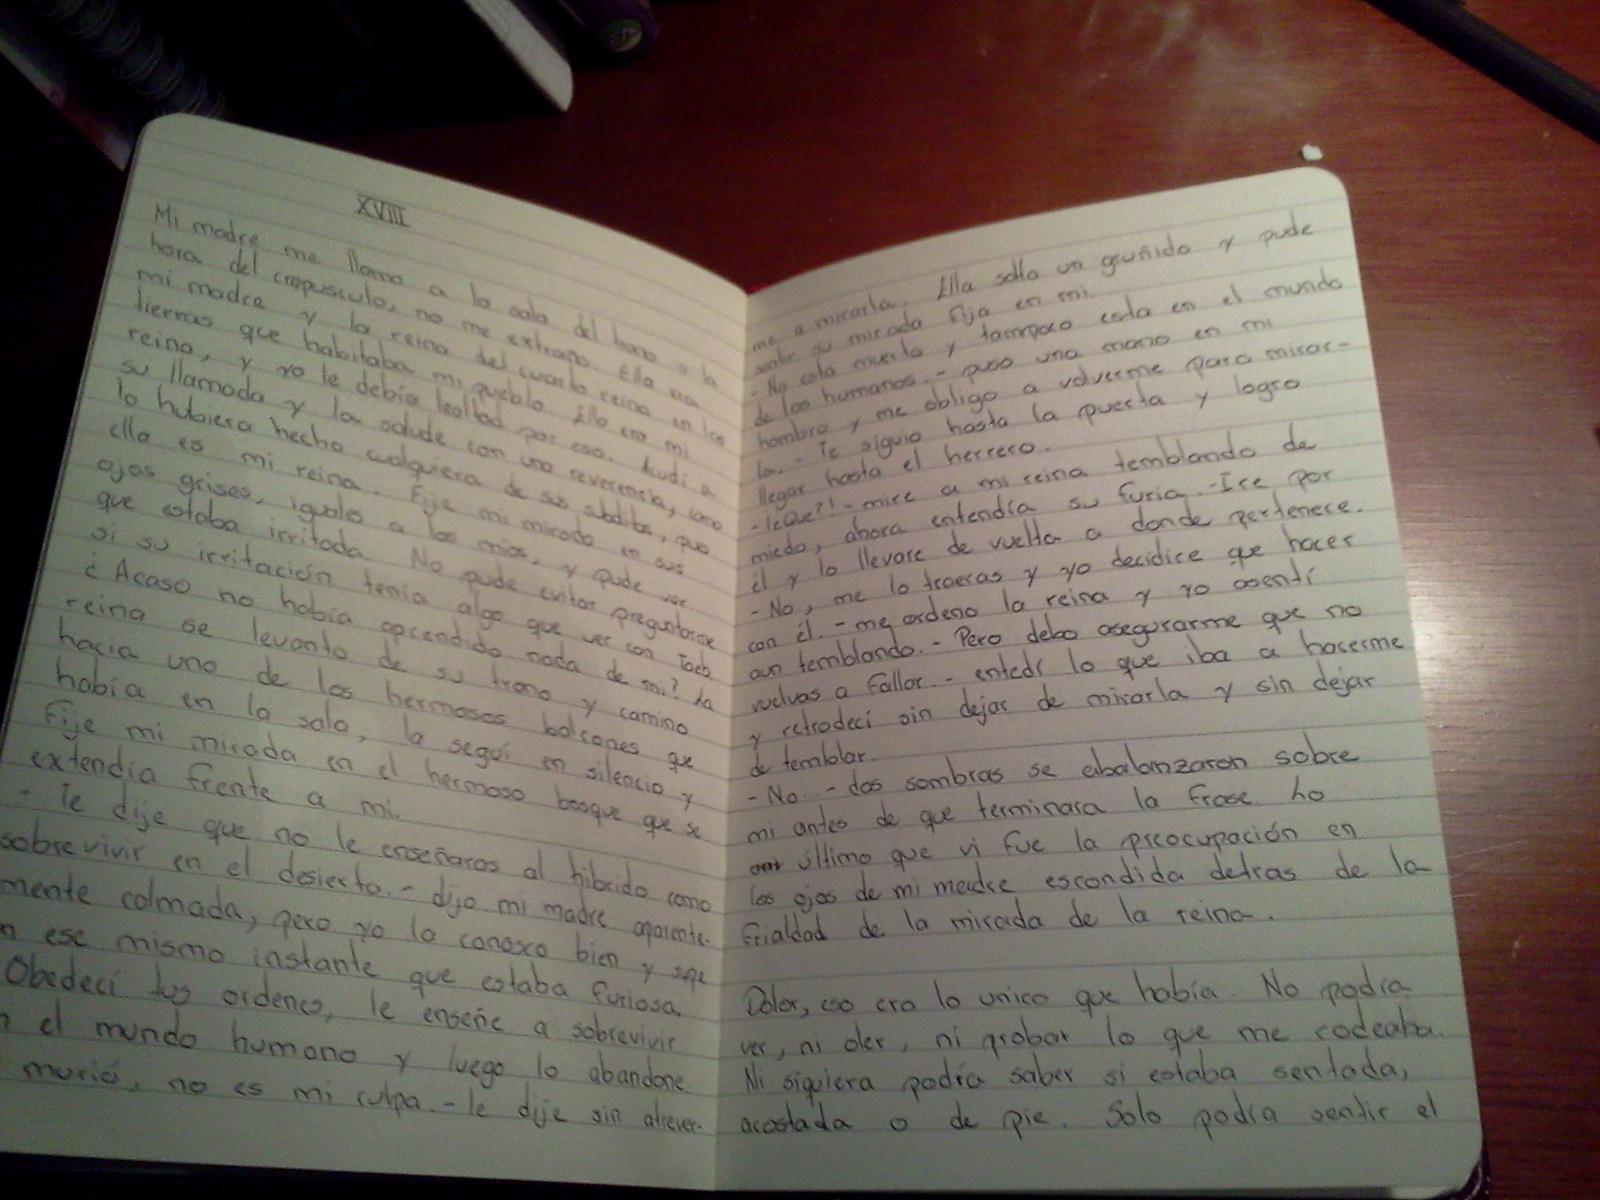 XVIII
Mi madre me llamo a la sala del trono a la
hora del crepusculo, no me extraño. Ella era
mi madre y la reina del cuarto reino en las
tierras que habitaba mi pueblo. Ella era mi
reina, y yo le debía lealtad por eso. Acudi a
su llamada y la salude con una reverencia, como
lo hubiera hecho cualquiera de sus subditos, pues
ella es mi reina. Fije mi mirada en sus
ojos grises, iguales a los mios, y pude ver
que estaba irritada. No pude evitar preguntarme
si su irritación tenía algo que ver con
¿Acaso no había aprendido nada de mi? La
reina se levanto de su trono y camino
hacia uno de los hermosos balcones que
había en la sala, la seguí en silencio y
Fije mi mirada en el hermoso bosque que se
extendía frente a mi.
- Te dije que no le enseñaras al hibrido como
sobrevivir en el desierto. - dijo mi madre aparente-
mente calmada, pero yo la conosco bien y supe
n ese mismo instante que estaba furiosa.
Obedecí tus ordenes, le enseñe a sobrevivir
n el mundo humano y luego lo abandone.
murió, no es mi culpa. - le dije sin atrever-
me a mirarla. Ella solto un gruñido y pude
sentir su mirada fija en mi.
- No esta muerto y tampoco esta en el mundo
de los humanos. - puso una mano en mi
hombro y me obligo a volverme para mirar-
la. - Te siguio hasta la puerta y logro
llegar hasta el herrero.
- ¿¡Que?! - mire a mi reina temblando de
miedo, ahora entendía su furia. - Ire por
él y lo llevare de vuelta a donde pertenece.
- No, me lo traeras y yo decidire que hacer
con él. - me ordeno la reina y yo asentí
aun temblando. - Pero debo asegurarme que no
vuelvas a fallar. - entedí lo que iba a hacerme
y retrodecí sin dejar de mirarla y sin dejar
de temblar.
- No... - dos sombras se abalanzaron sobre
mi antes de que terminara la frase lo
último que vi fue la preocupación en
los ojos de mi madre escondida detras de la
frialdad de la mirada de la reina.
Dolor, eso era lo unico que había. No podía
ver, ni oler, ni probar lo que me rodeaba.
Ni siquiera podía saber si estaba sentada,
acostada o de pie. Solo podía sentir el